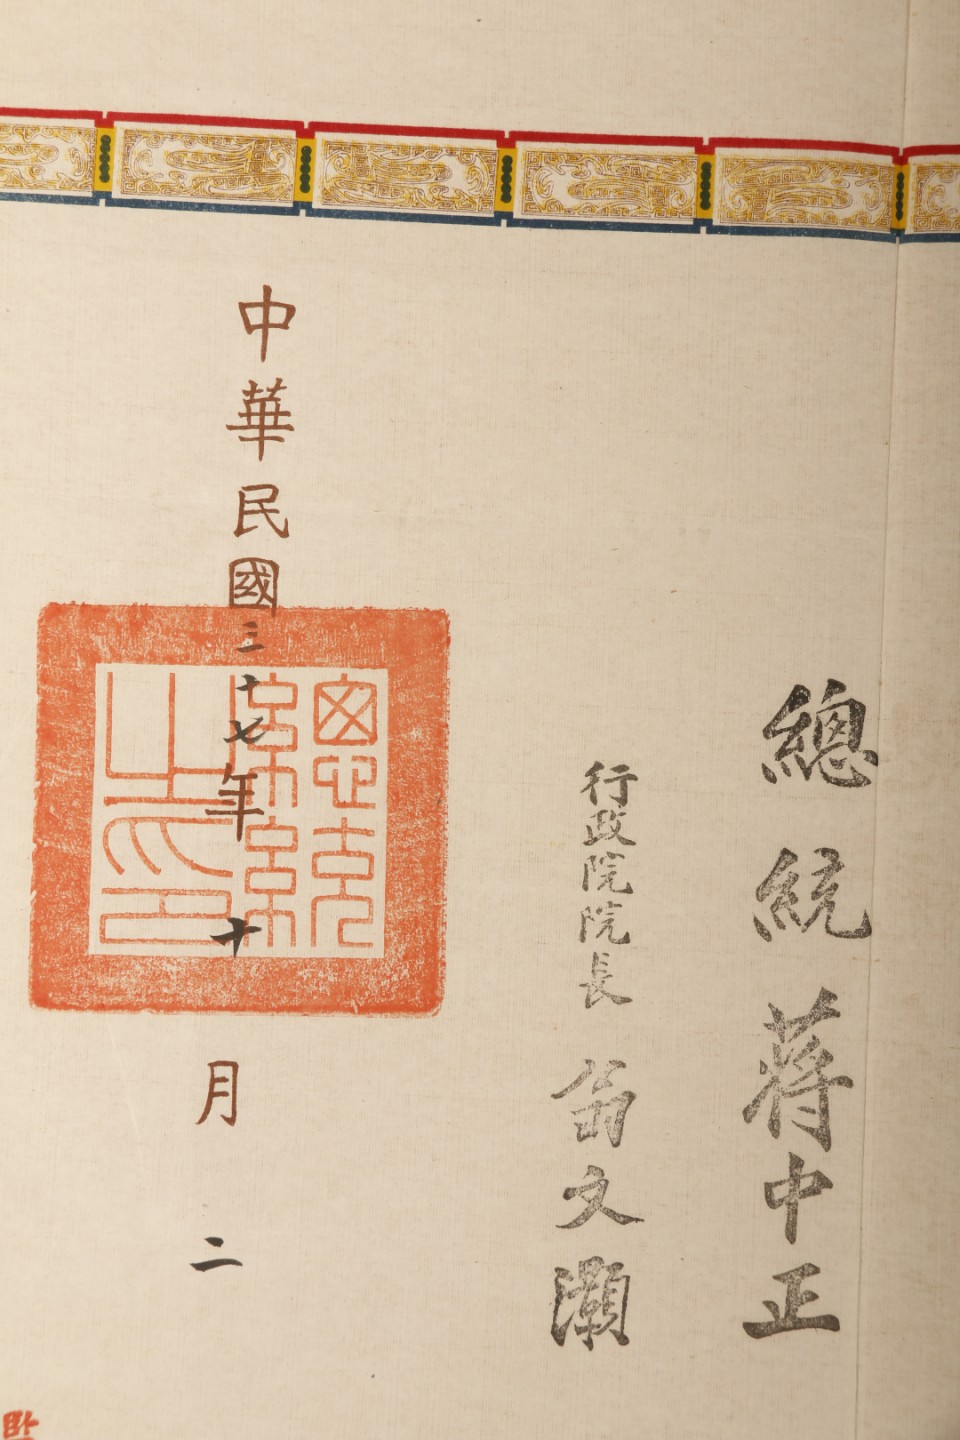 總統 蔣中正
行政院院長 翁文灝
中華民國三十七年十月二
總統之印